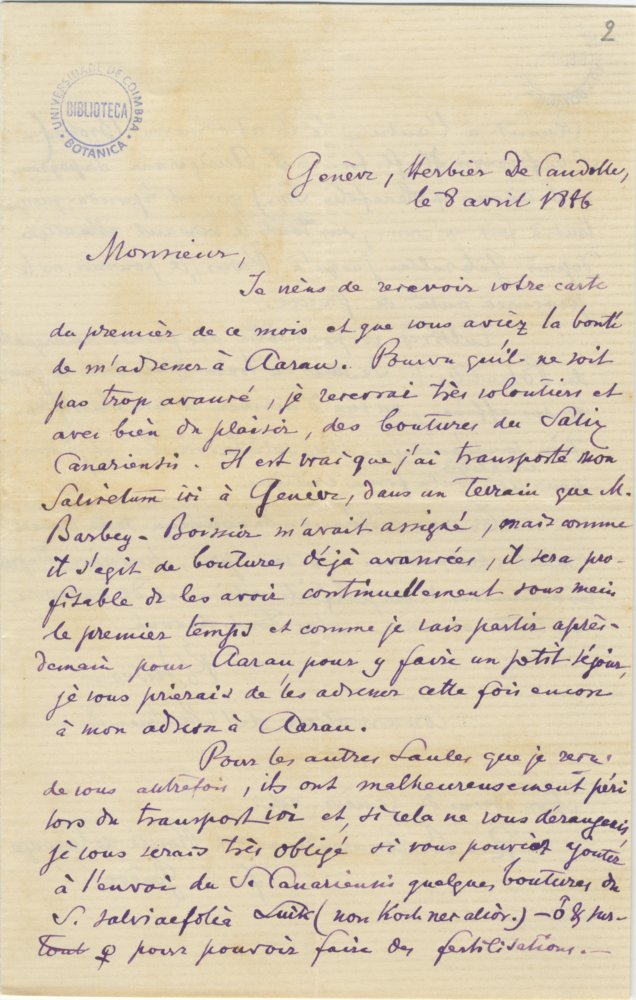 2
UNIVERSIDADE DE COIMBRA
BIBLIOTECA
BOTANICA
Genève, Herbier De Candolle,
le 8 avril 1886
Monsieur,
Je viens de recevoir votre carte
du premièr de ce mois et que vous avièz la bonté
de m'adresser à Aarau. Pourvu qu'il ne soit
pas trop avancé, je recevrai très volontiers et
avec bien du plaisir, des boutures du Salix
Canariensis. Il est vrai que j'ai transporté mon
Salicetum ici à Genève, dans un terrain que M.
Barbey-Boissier m'avait assigné, mais comme
it s'egit de boutures déjà avancées, il sera pro-
fitable de les avoir continuellement sous main
le premier temps et comme je vais partir après-
demain pour Aarau pour y faire un petit séjour,
je vous prierais de les adresser cette fois encore
à mon adresse à Aarau.
Pour les autres Saules que je recus
de vous autrefois, ils ont malheureusement péri
lors du transport ici et, si cela ne vous dérangeais
je vous serais très obligé si vous pouvièz y
à l'envoi du S. Canariensis quelques boutures du
S. salviaefolia (non Koch nec alior.) – ♂ & sur-
tout ♀ pour pouvoir faire des fertilisations. —